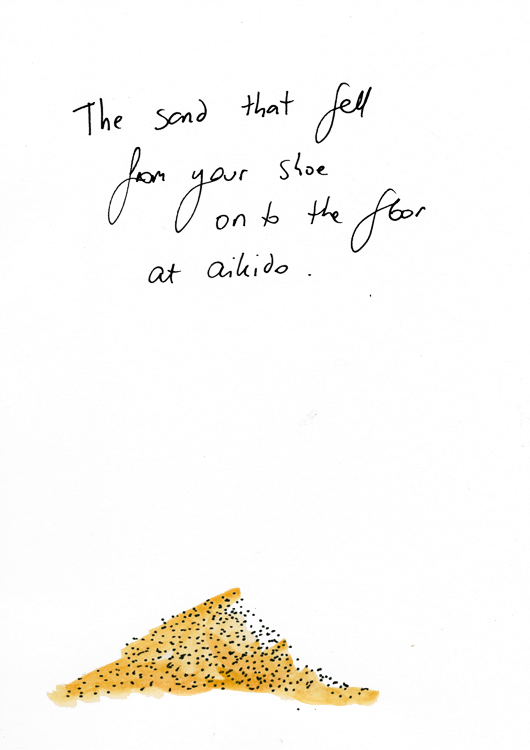 The sand that fell
from your shoe
on to the floor
at aikido.